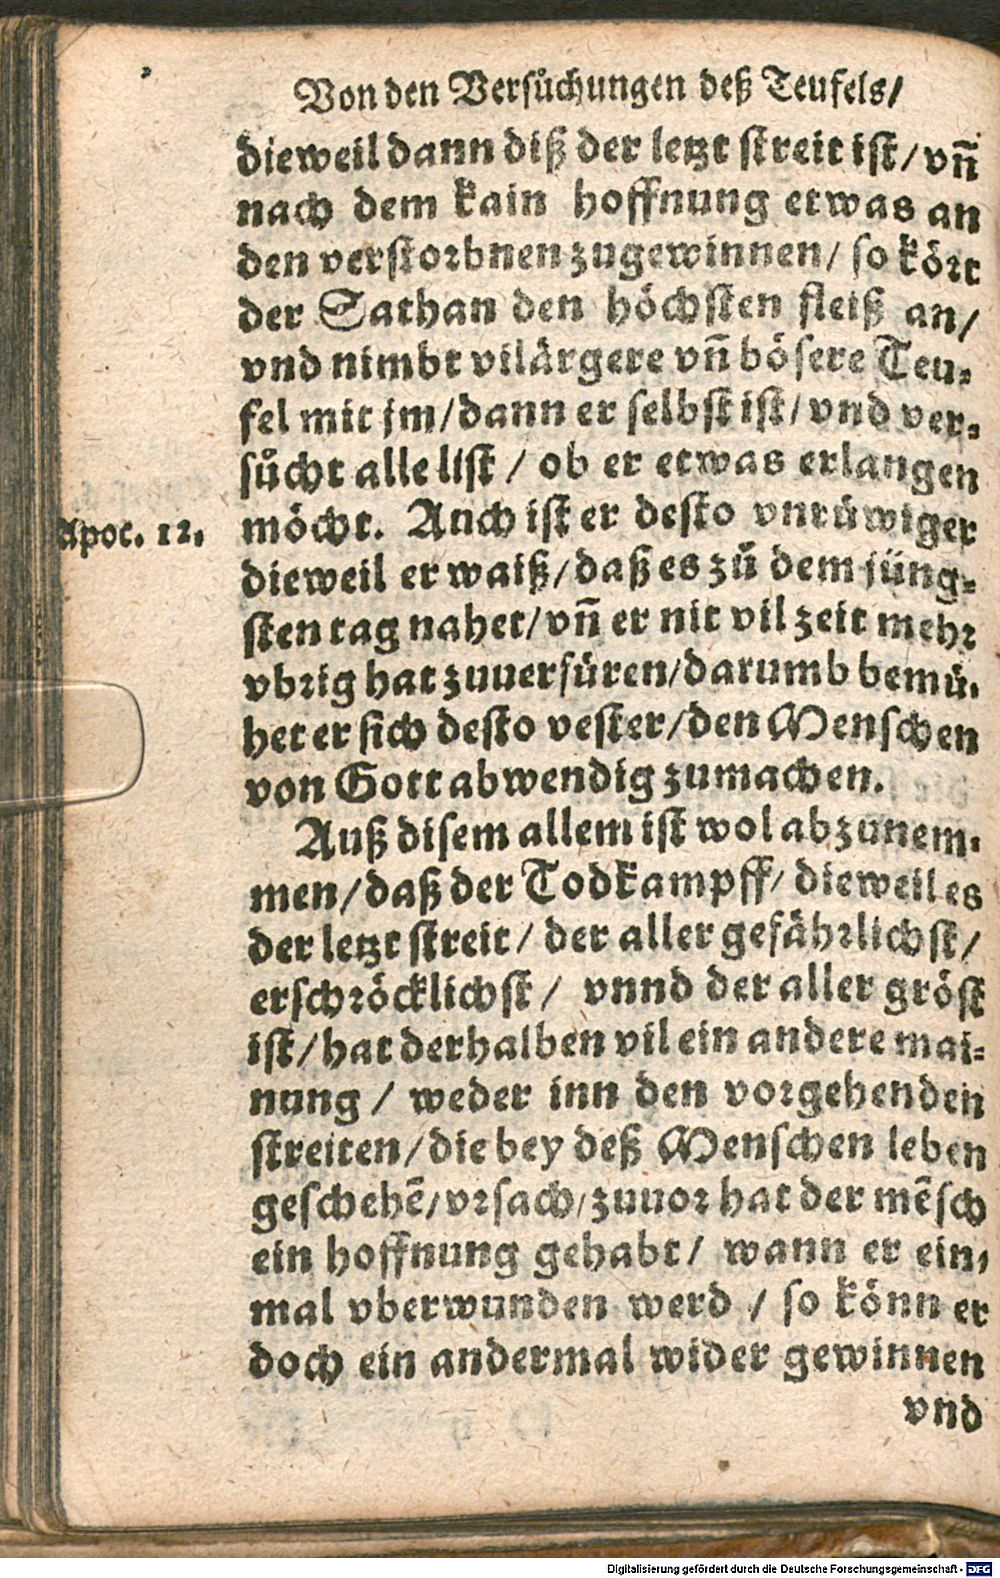 Von den Versůchungen deß Teufels/
dieweil dann diß der letzt streit ist/ vñ
nach dem kain hoffnung etwas an
den verstorbnen zugewinnen/ so kört
der Sathan den höchsten fleiß an/
vnd nimbt vil ärgere vñ bösere Teu-
fel mit jm/ dann er selbst ist/ vnd ver-
sůcht alle list / ob er etwas erlangen
möcht. Auch ist er desto vnrüwiger
Apoc. 12.
dieweil er waiß/ daß es zů dem jüng-
sten tag nahet/ vñ er nit vil zeit mehr
vbrig hat zuuersüren/ darumb bemü-
het er sich desto vester/ den Menschen
von Gott abwendig zumachen.
Auß disem allem ist wol abzunem-
men/ daß der Todkampff/ dieweil es
der letzt streit/ der aller gefährlichst/
erschröcklichst/ vnnd der aller gröst
ist/ hat derhalben vil ein andere mai-
nung / weder inn den vorgehenden
streiten/ die bey deß Menschen leben
geschehẽ/ vrsach/ zuuor hat der mẽsch
ein hoffnung gehabt/ wann er ein-
mal vberwunden werd / so könn er
doch ein andermal wider gewinnen
vnd
Digitalisierung gefördert durch die Deutsche Forschungsgemeinschaft - DFG